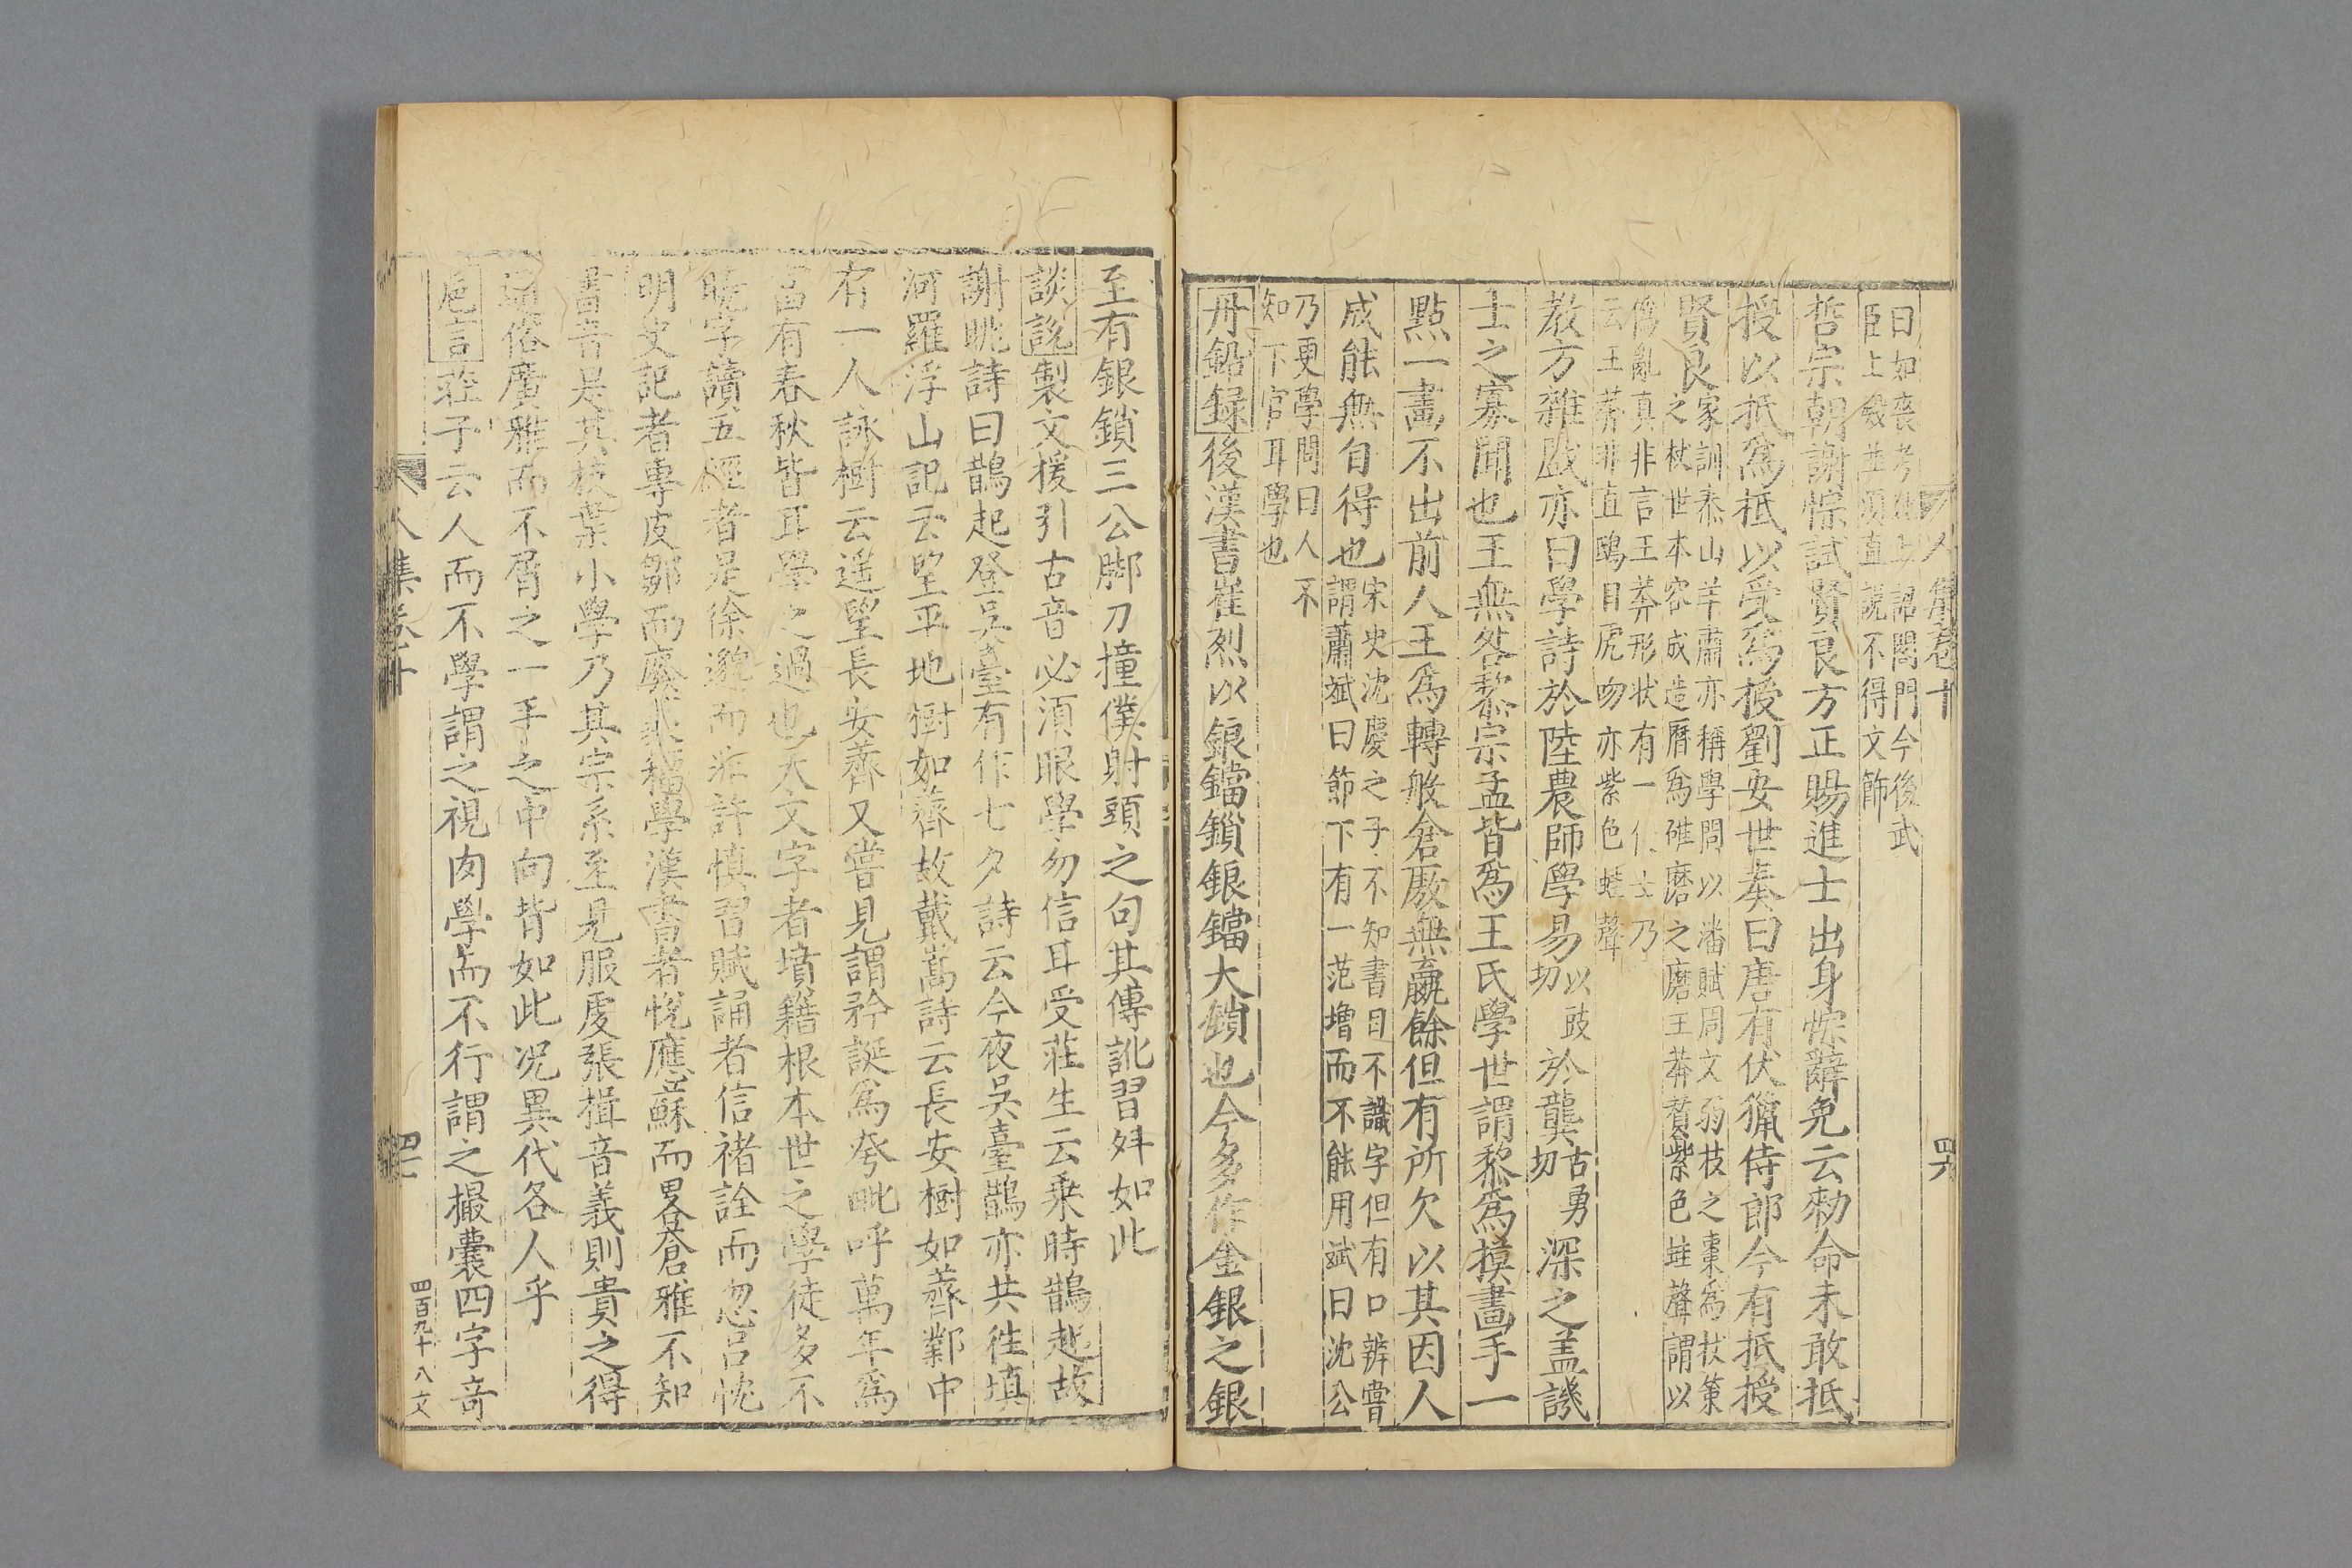 人集卷十
四六
曰如喪考妣上詔閤門今後武
臣上殿並須直說不得文飾
哲宗朝謝悰試賢良方正賜進士出身悰辭免云勑命未敢抵
授以抵爲祗以受爲授劉安世奏曰唐有伏獵侍郎今有抵授
賢良家訓泰山羊肅亦稱學問以潘賦周文弱枝之棗爲杖策
之杖世本容成造曆爲碓磨之磨王莽賛紫色蛙聲謂以
僞亂真非言王莽形状有一人士乃
云王莽非直鴟目虎吻亦紫色蛙聲
教方雜䟦亦曰學詩於陸農師學易以豉切於龔古勇切深之盖譏
士之寡聞也王無咎黎宗孟皆爲王氏學世謂黎爲摸畫手一
點一畫不出前人王爲轉般倉厫無贏餘但有所欠以其因人
成能無自得也宋史沈慶之子不知書目不識字但有口辨嘗
謂蕭斌曰節下有一范増而不能用斌曰沈公
乃更學問曰人不
知下官耳學也
丹鉛録後漢書崔烈以鋃鐺鎖鋃鐺大鎖也今多作金銀之銀
至有銀鎖三公脚刀撞僕射頭之句其傳訛習舛如此
談說製文援引古音必須眼學勿信耳受莊生云乘時鵲起故
謝眺詩曰鵲起登吳臺有作七夕詩云今夜吳臺鵲亦共往填
河羅浮山記云望平地樹如薺故戴嵩詩云長安樹如薺鄴中
有一人詠樹云遥望長安薺又嘗見謂矜誕爲夸毗呼萬年爲
富有春秋皆耳學之過也大文字者墳籍根本世之學徒多不
曉字讀五經者是徐邈而非許慎習賦誦者信褚詮而忽呂忱
明史記者專皮鄒而廢篆籀學漢書者悅應蘇而畧蒼雅不知
書音是其枝葉小學乃其宗系至見服虔張揖音義則貴之得
通俗廣雅而不屑之一手之中向背如此况異代各人乎
巵言莊子云人而不學謂之視肉學而不行謂之撮囊四字竒
人集卷十
四七
四百九十八文